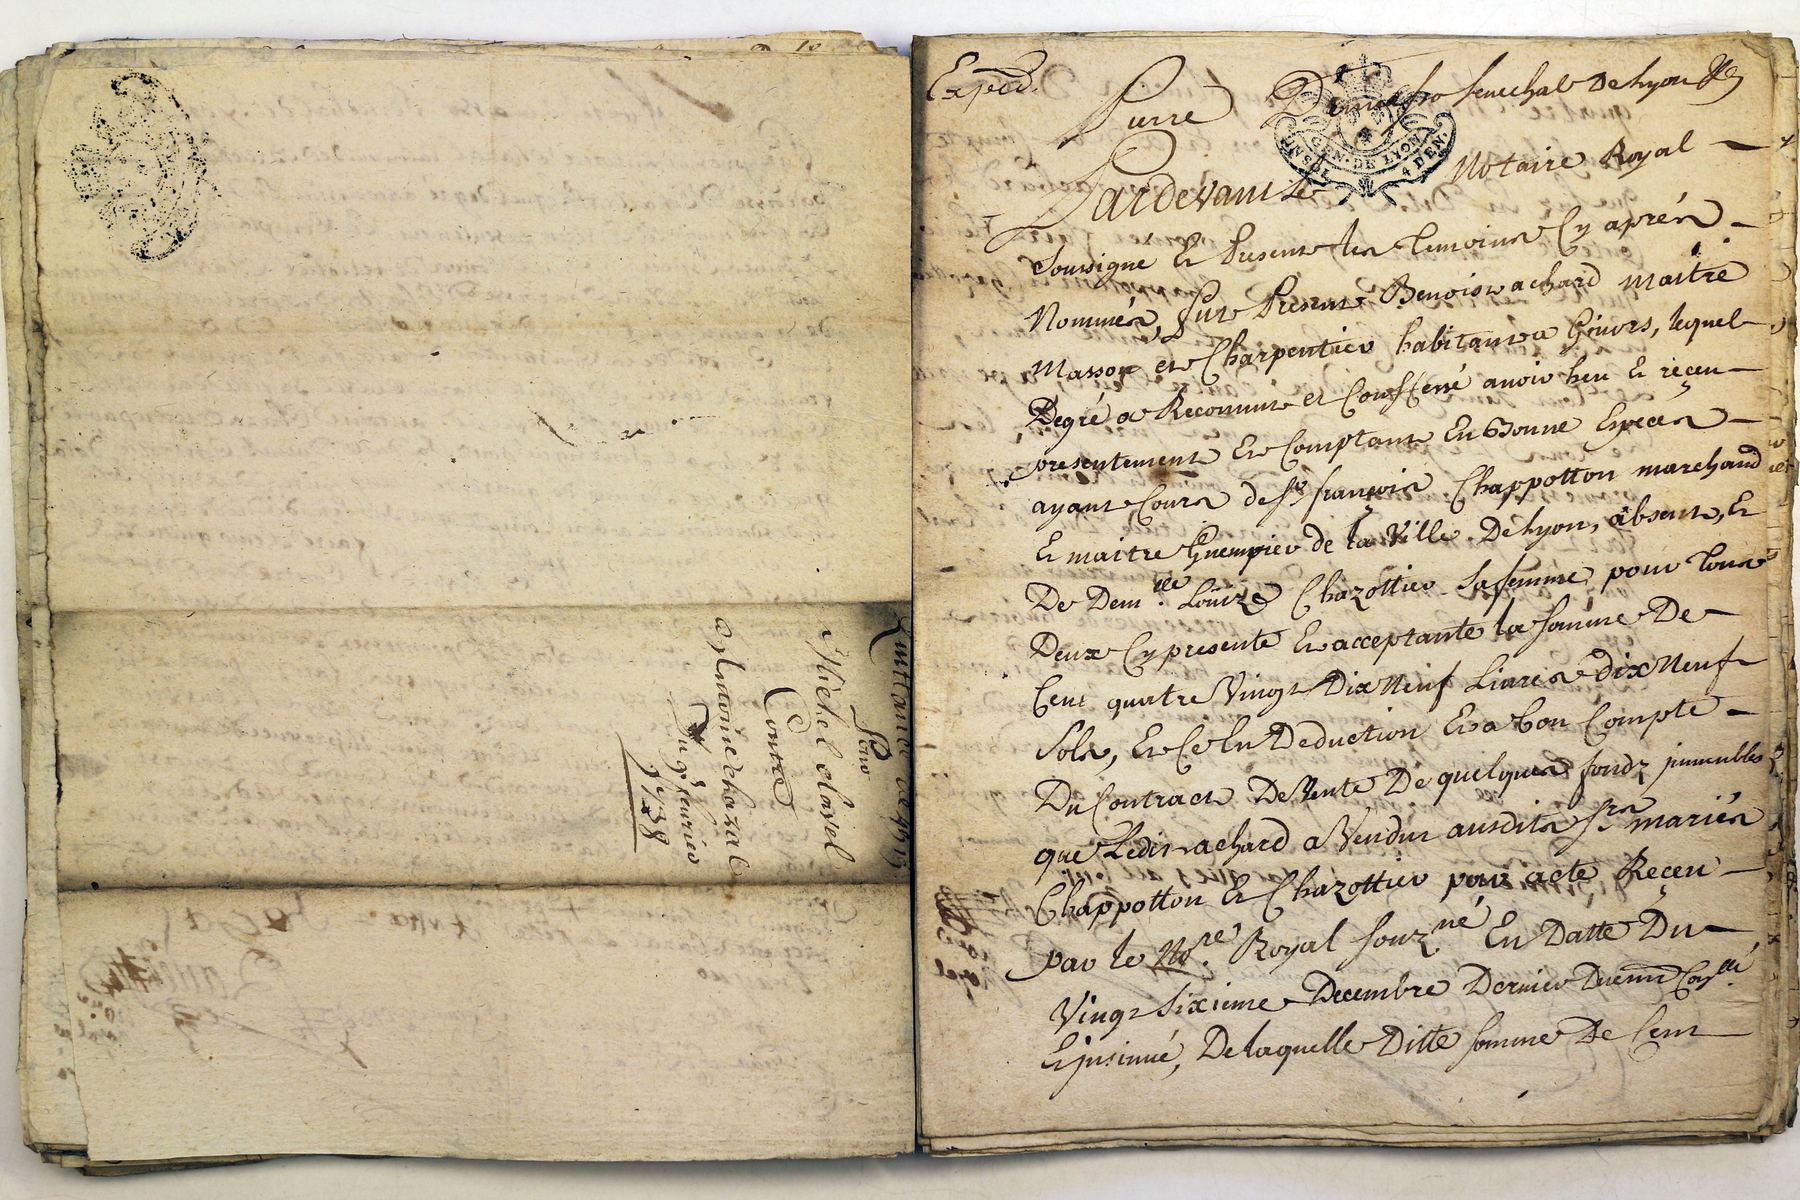 10
Quittance de 99 lt
Pour
Michel Clavel
Contre
Antoine chazal
Du 9e feurier
1738
Expéd.
Pierre Dumas senechal De Lyon
GEN. DE LYON
DEN.
Pardevant Le Notaire Royal
Soussigné Et Presents les Temoins Cy aprés
Nommés, Fut Present Benoist achard maitre
Masson et Charpentier habitant a Givors, lequel
Degré a Reconnu et Confessé avoir heu Et reçeu
presentement Et Comptant En Bonne Especes
ayant Cours de sr. françois Chappotton marchand
Et maitre Guempier de la Ville De Lyon, absent, Et
De Demlle. Loüize Chazottier Sa femme pour Tous
Deux Cy presente Et acceptante la somme De
Cent quatre Vingt Dix Neuf Livres dix Neuf
Sols, Et Ce En Deduction Et a bon Compte
Du Contract De Vente De quelques fondz jmmeubles
que Ledit achard a Vendus ausdits srs mariés
Chappotton Et Chazottier par acte Reçeu
par le Nore. Royal souzné En Datte Du
Vingt Sixieme Decembre Dernier Duemt
Et jnsinué, De laquelle Ditte somme De Cent